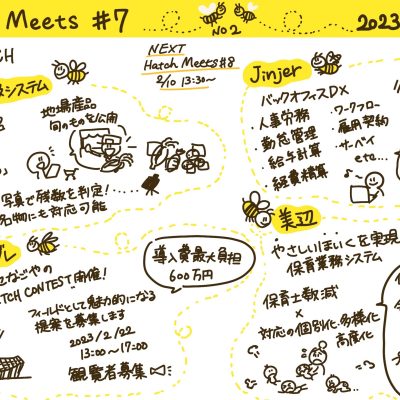 Meets #7
NO2
2023
CH
NEXT
Hatch Meets#8
2/10 13:30〜
システム
地場産品
旬のものを公開
写真で残数を判定!
名物にも対応可能
Jinjer
バックオフィスDX
・人事労務
・勤怠管理
・給与計算
・経費精算
・ワークフロー
・雇用契約
・サーベイ
etc...
ブル
なごやの
TCH CONTEST開催!
フィールドとして魅力的になる
提案を募集します
2023/2/22
13:00〜17:00
観覧者募集
導入費最大負担
600万円
美辺
やさしいほいくを実現
保育業務システム
保育士数減
×
対応の個別化・多様化
高度化